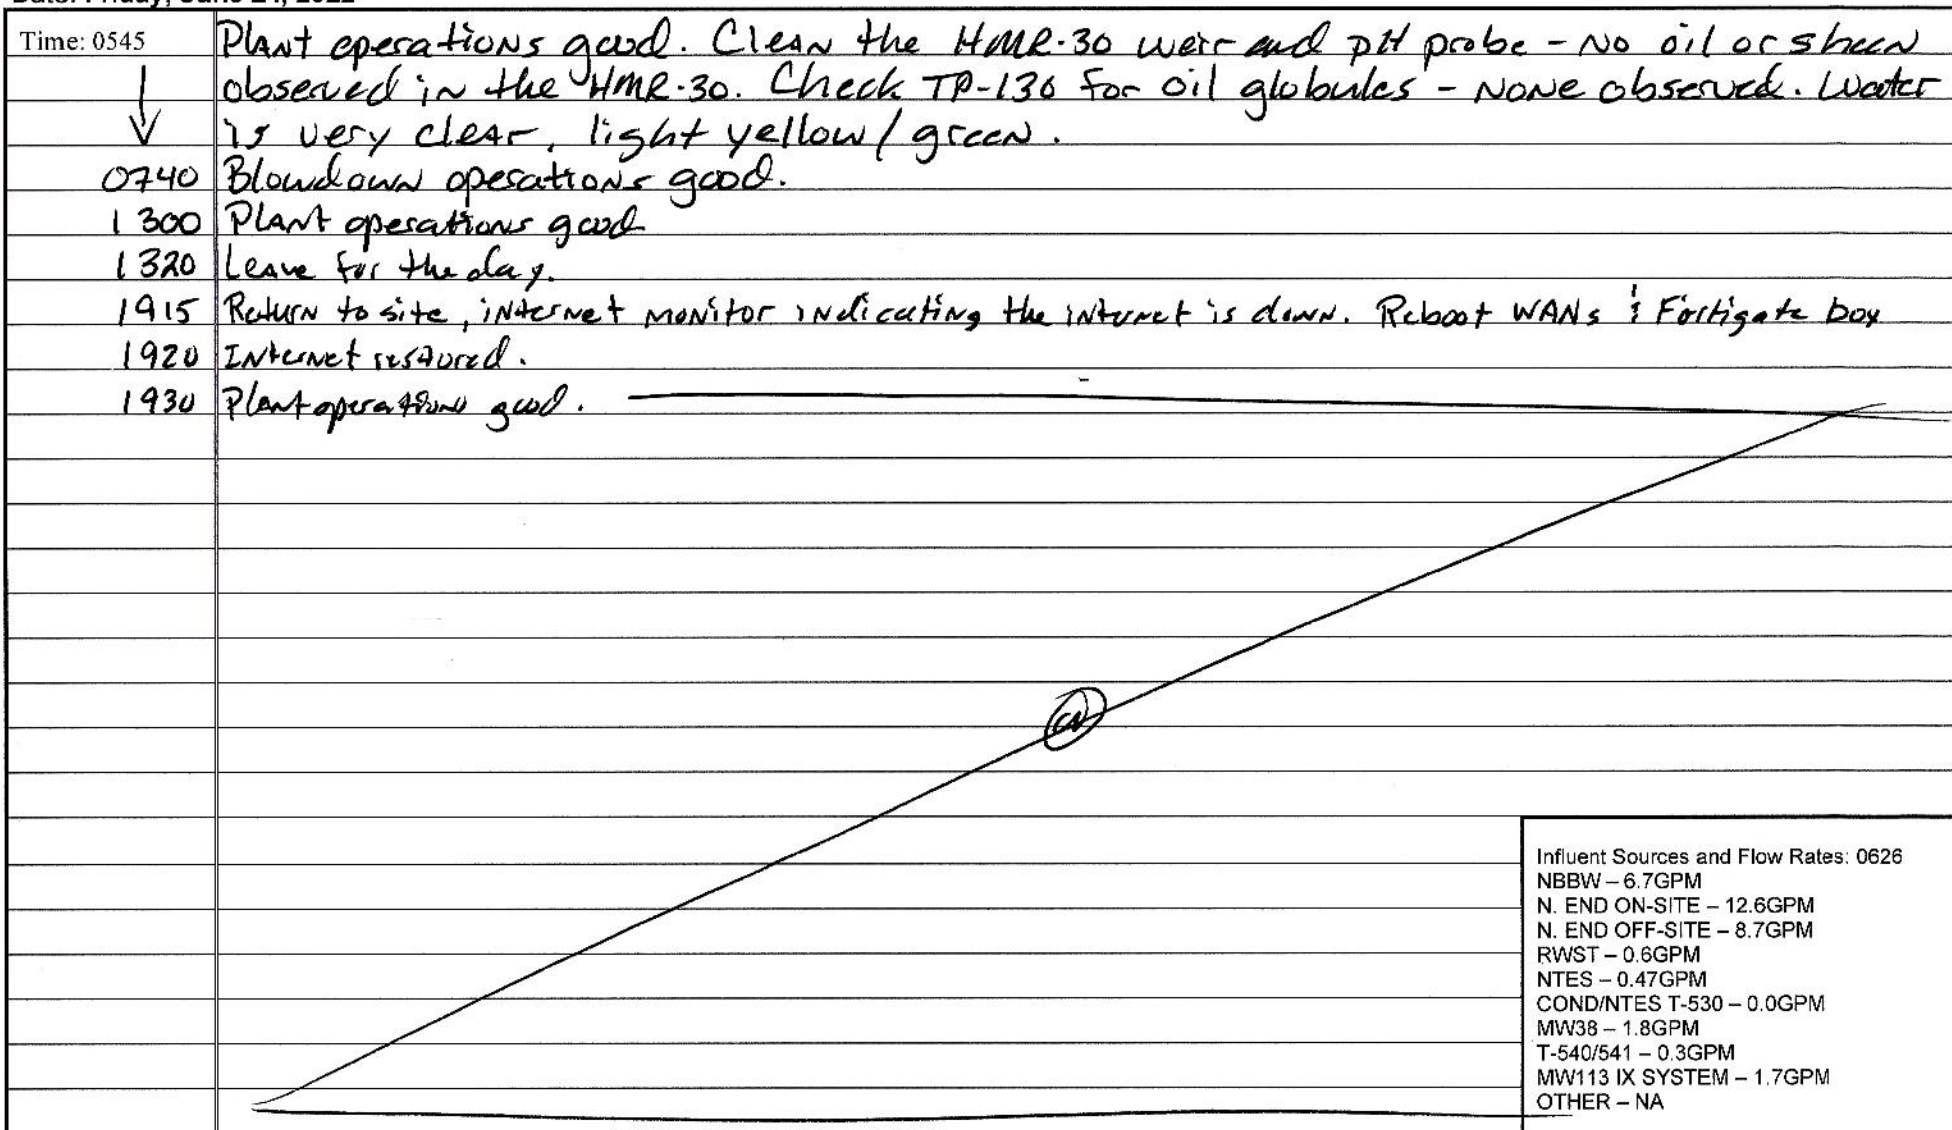 Date: Friday, June 24, 2022
Time: 0545 Plant operations good. Clean the HMR-30 weir and pH probe - No oil or sheen
observed in the HMR-30. Check TP-130 for oil globules - None observed. Water
is very clear, light yellow/green.
0740 Blowdown operations good.
1300 Plant operations good
1320 Leave for the day.
1915 Return to site, internet monitor indicating the internet is down. Reboot WANs & Fortigate box
1920 Internet restored.
1930 Plant operations good.
Influent Sources and Flow Rates: 0626
NBBW – 6.7GPM
N. END ON-SITE – 12.6GPM
N. END OFF-SITE – 8.7GPM
RWST – 0.6GPM
NTES – 0.47GPM
COND/NTES T-530 – 0.0GPM
MW38 – 1.8GPM
T-540/541 – 0.3GPM
MW113 IX SYSTEM – 1.7GPM
OTHER – NA